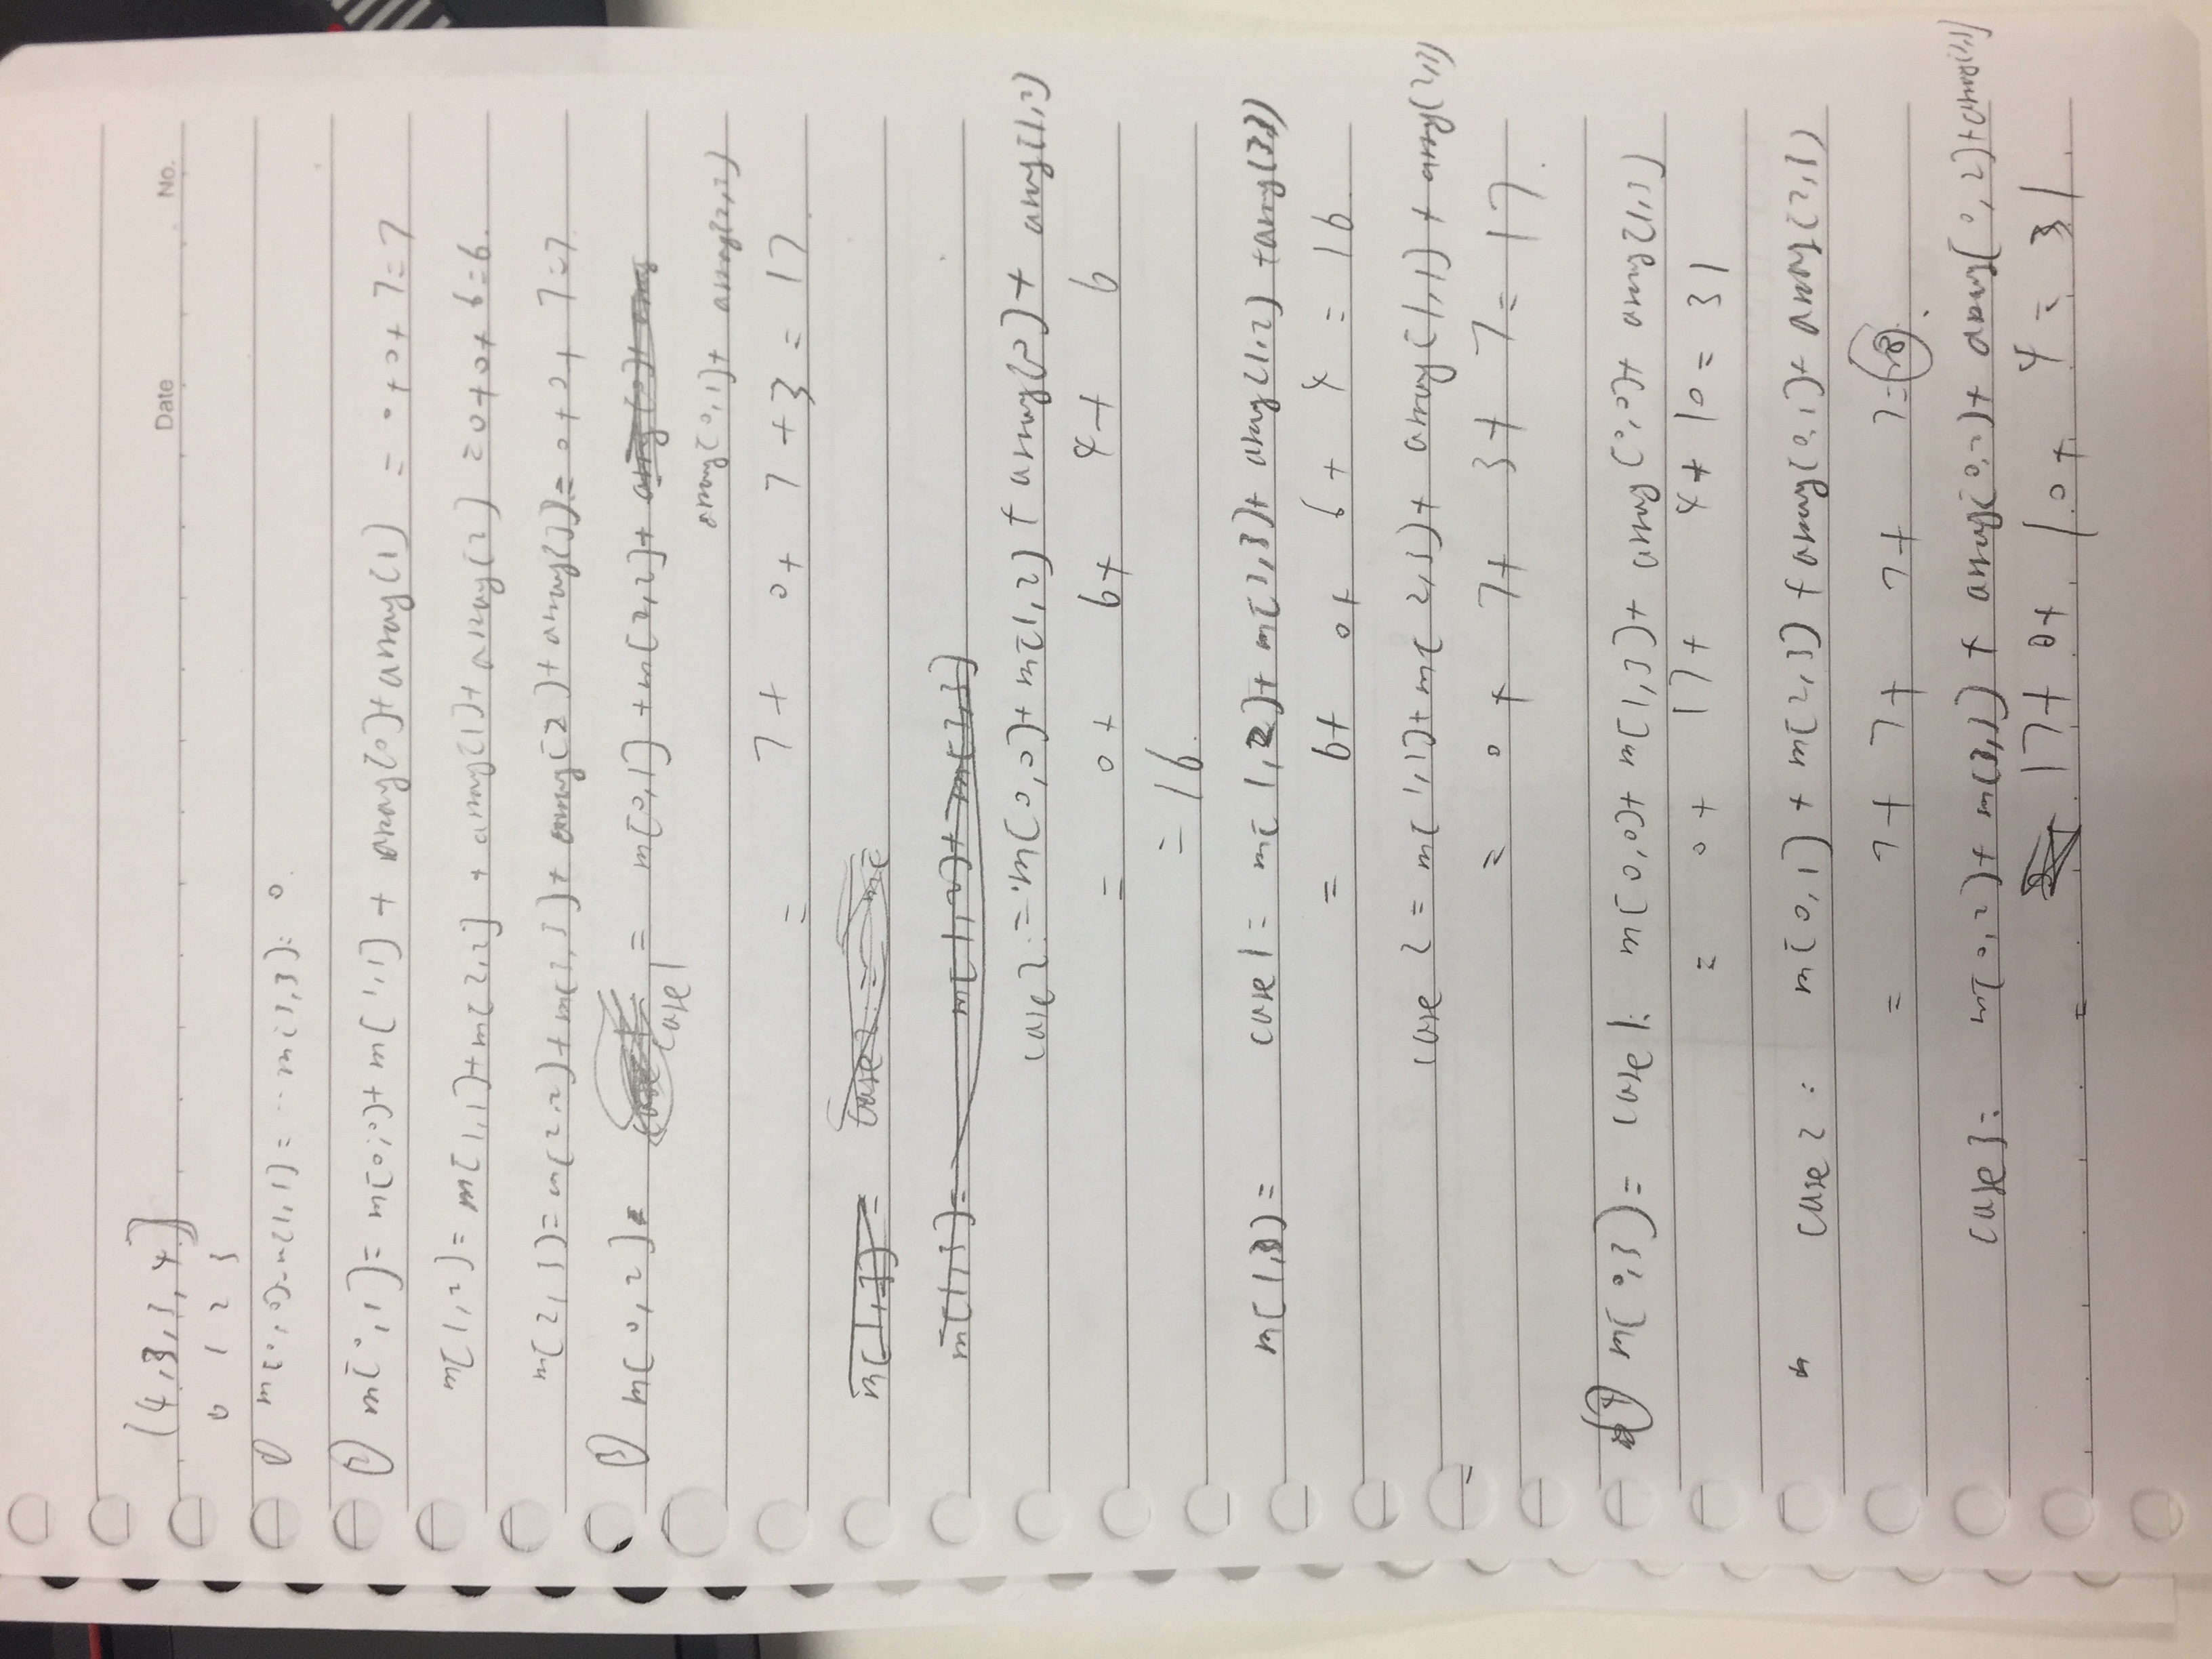 [4,3,3,4]
Date No.
0 1 2 3
① m[0,0]=m[1,1] = ... m[3,3] = 0.
② m[0,1] = m[0,0] + m[1,1] + array[0] + array[1] = 0+0+7=7
m[1,2] = m[1,1] + m[2,2] + array[1] + array[2] = 0+0+6=6.
m[2,3] = m[2,2] + m[3,3] + array[2] + array[3] = 0+0+7=7
③ m[0,2] = case 1 = m[0,1] + m[2,2] + array[0]+ array
array[0,1] + array[2,2]
= 7+ 0+ 7+3 = 17.
m[1,3] = case 2 = m[
m[1,3] = m[1,2] + m[3,3]
case 2 = m[0,0] + m[1,2] + array[0] + array[1,2]
= 0+ 6+ 4+ 6
= 16.
m[1,3] = case 1 = m[1,2] + m[3,3] + array[1,2] + array[3,3]
= 6+ 0+ 6+ 4 = 16.
case 2 = m[1,1] + m[2,3] + array[1,1] + array[2,3]
= 0+ 7+ 3+ 7= 17.
④ m[0,3] = case 1: m[0,0] + m[1,3] + array[0,0] + array[1,3]
= 0+ 17+ 4+ 10 = 31
case 2 : m[0,1] + m[2,3] + array[0,1] + array[2,3]
= 7+ 7+ 7+ 7=28.
case 3: m[0,2] + m[3,3] + array[0,2] + array[0,2] + array[3,3]
= 17+ 0+ 10+ 4 = 31.